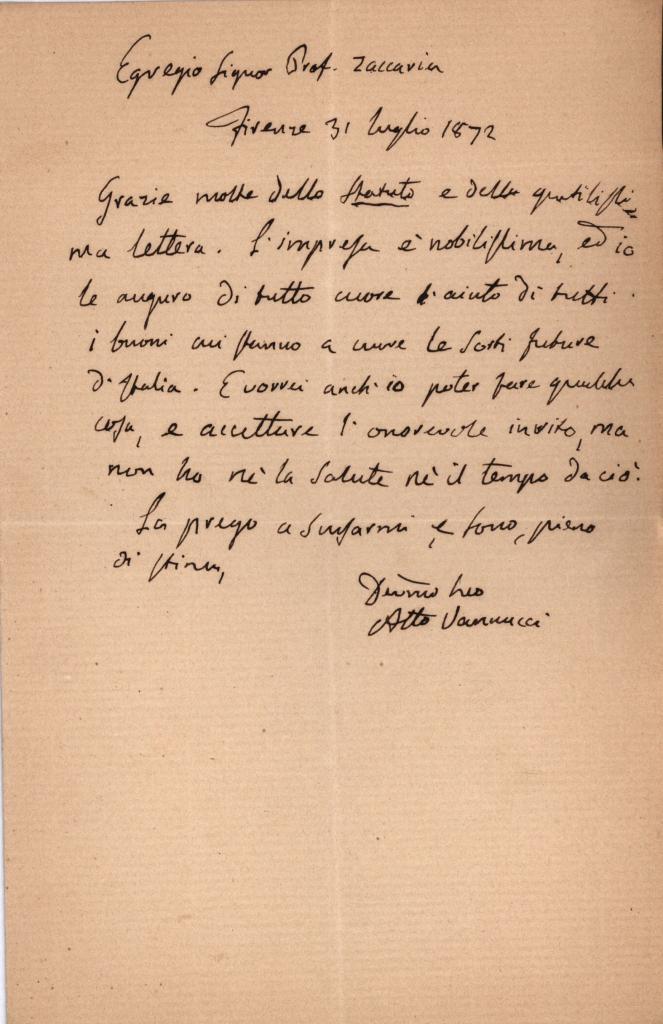 Egregio Signor Prof. Zaccaria
Firenze 31 luglio 1872
Grazie molte dello Statuto e della gentilissi=
ma lettera. L'impresa è nobilissima, ed io
le auguro di tutto cuore l'aiuto di tutti
i buoni cui stanno a cuore le sorti future
d'Italia. E vorrei anch'io poter fare qualche
cosa, e accettare l'onorevole invito, ma
non ho nè la salute nè il tempo da ciò.
La prego a scusarmi, e sono, pieno
di stima,
Devmo Suo
Atto Vannucci